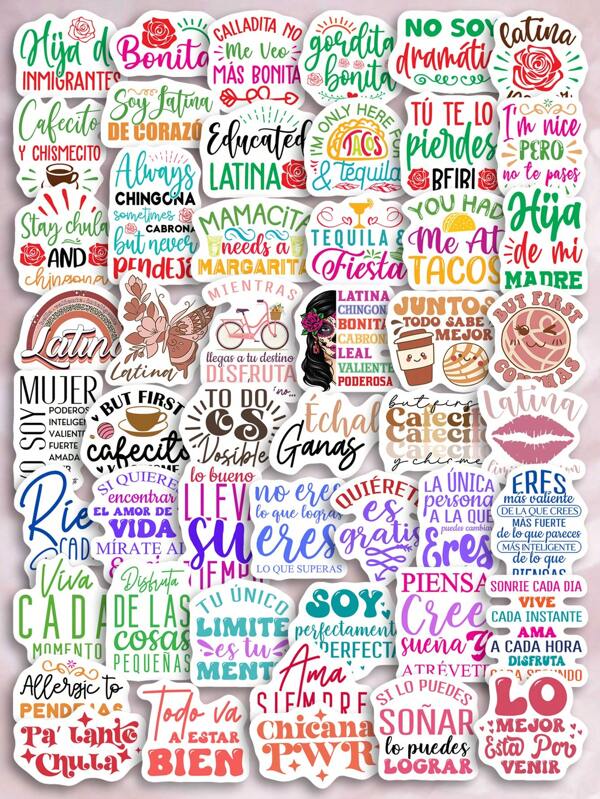 Hija d
INMIGRANTES
Bonita
CALLADITA NO
Me Veo
MÁS BONITA
gordita
bonita
NO SOY
dramátic
latina
Cafecito
Y CHISMECITO
Soy Latina
DE CORAZO
Educated
LATINA
I'M ONLY HERE FOR
TACOS
& tequila
TÚ TE LO
pierdes
BFIRI
I'm nice
PERO
no te pases
Stay chula
AND
chingona
Always
CHINGONA
sometimes
CABRONA
but never
PENDEJA
MAMACITA
needs a
MARGARITA
TEQUILA &
Fiesta
YOU HAD
Me At
TACOS
Hija
de mi
MADRE
Latina
Latina
MIENTRAS
llegas a tu destino
DISFRUTA
LATINA
CHINGON
BONITA
CABRON
LEAL
VALIENTE
PODEROSA
JUNTOS
TODO SABE
MEJOR
BUT FIRST
CONCHAS
YO SOY
MUJER
PODEROS
INTELIGEN
VALIENT
FUERTE
AMADA
BUT FIRST
cafecito
TODO
ES
Posible
Échal
Ganas
but first
Cafecit
Cafecit
Cafecit
y chisme
Latina
Ríe
CADA
SI QUIERE
encontrar
EL AMOR DE
VIDA
MÍRATE AL
lo bueno
LLEV
su
TIEMPO
no eres
lo que logra
eres
LO QUE SUPERAS
QUIÉRETE
es
gratis
LA ÚNICA
persona
A LA QUE
puedes cambiar
Eres
ERES
más valiente
DE LA QUE CREES
MÁS FUERTE
de lo que pareces
MÁS INTELIGENTE
de lo que
PIENSAS
Viva
CADA
MOMENTO
Disfruta
DE LAS
cosas
PEQUEÑAS
TU ÚNICO
LIMITE
es tu
MENTE
SOY
perfectament
PERFECTA
PIENSA
Cree
sueña Y
ATRÉVETE
SONRIE CADA DIA
VIVE
CADA INSTANTE
AMA
A CADA HORA
DISFRUTA
CADA SEGUNDO
Allergic to
PENDEJAS
Pa' tanto
Chula
Todo va
A ESTAR
BIEN
Ama
SIEMPRE
Chicana
PWR
SI LO PUEDES
SOÑAR
lo puedes
LOGRAR
LO
MEJOR
Esta Por
VENIR